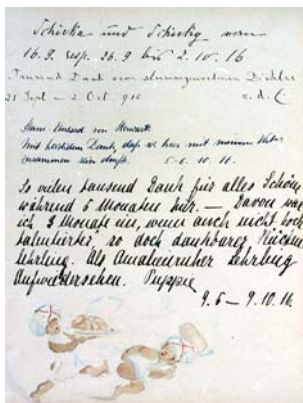 Schicka und Schickig vom
16.9. resp. 26.9 bis 2.10.16
Tausend Dank vom Dichter
21 Sept – 2 Oct. 916 v. d. C
Hans von
Mit herzlichem Dank, daß ich hier mit meinem Vater
zusammen sein durfte. 5–6. 10. 16.
So vielen tausend Dank für alles Schöne
während 5 Monaten hier. — Davon war
ich 3 Monate ein, wenn auch nicht hoch
talentierter, so doch dankbarer Küchen
lehrling. Als Amalienruher Lehrling
Aufwiedersehen. Puppie
9.6 – 9.10.16.